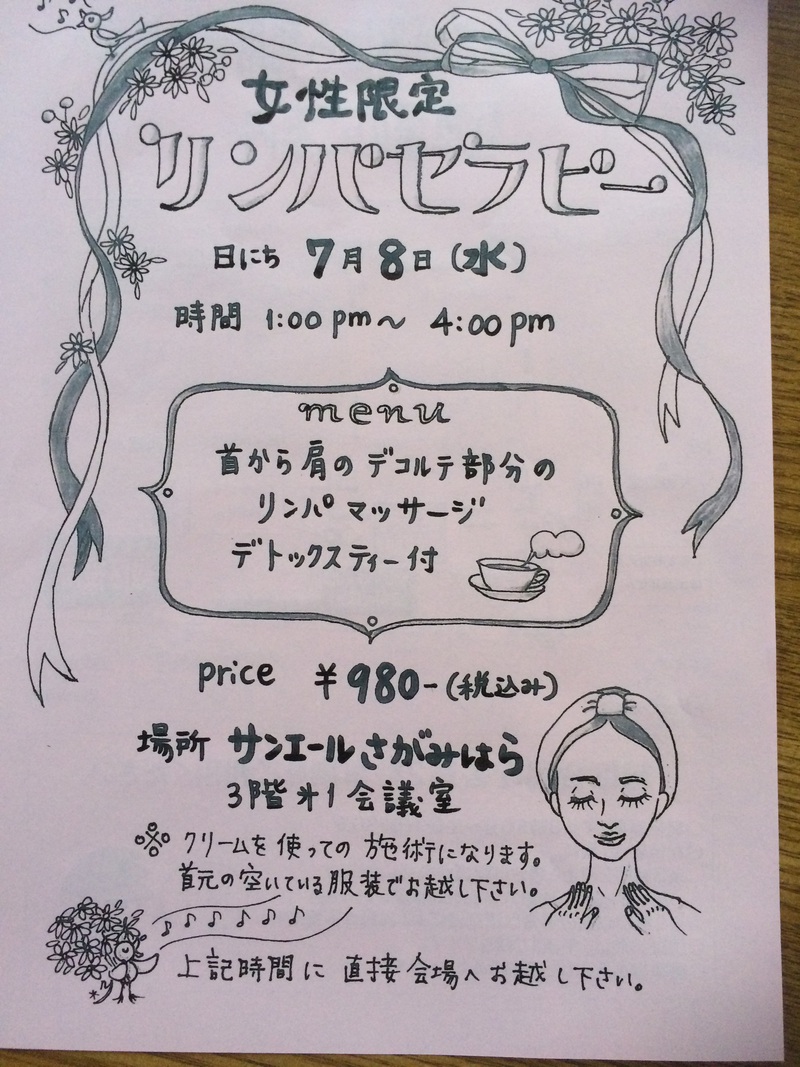 女性限定
リンパセラピー
日にち 7月8日(水)
時間 1:00pm～ 4:00pm
menu
首から肩のデコルテ部分の
リンパマッサージ
デトックスティー付
price ¥980-(税込み)
場所 サンエールさがみはら
3階 オ1会議室
※クリームを使っての施術になります。
首元の空いている服装でお越し下さい。
上記時間に直接会場へお越し下さい。